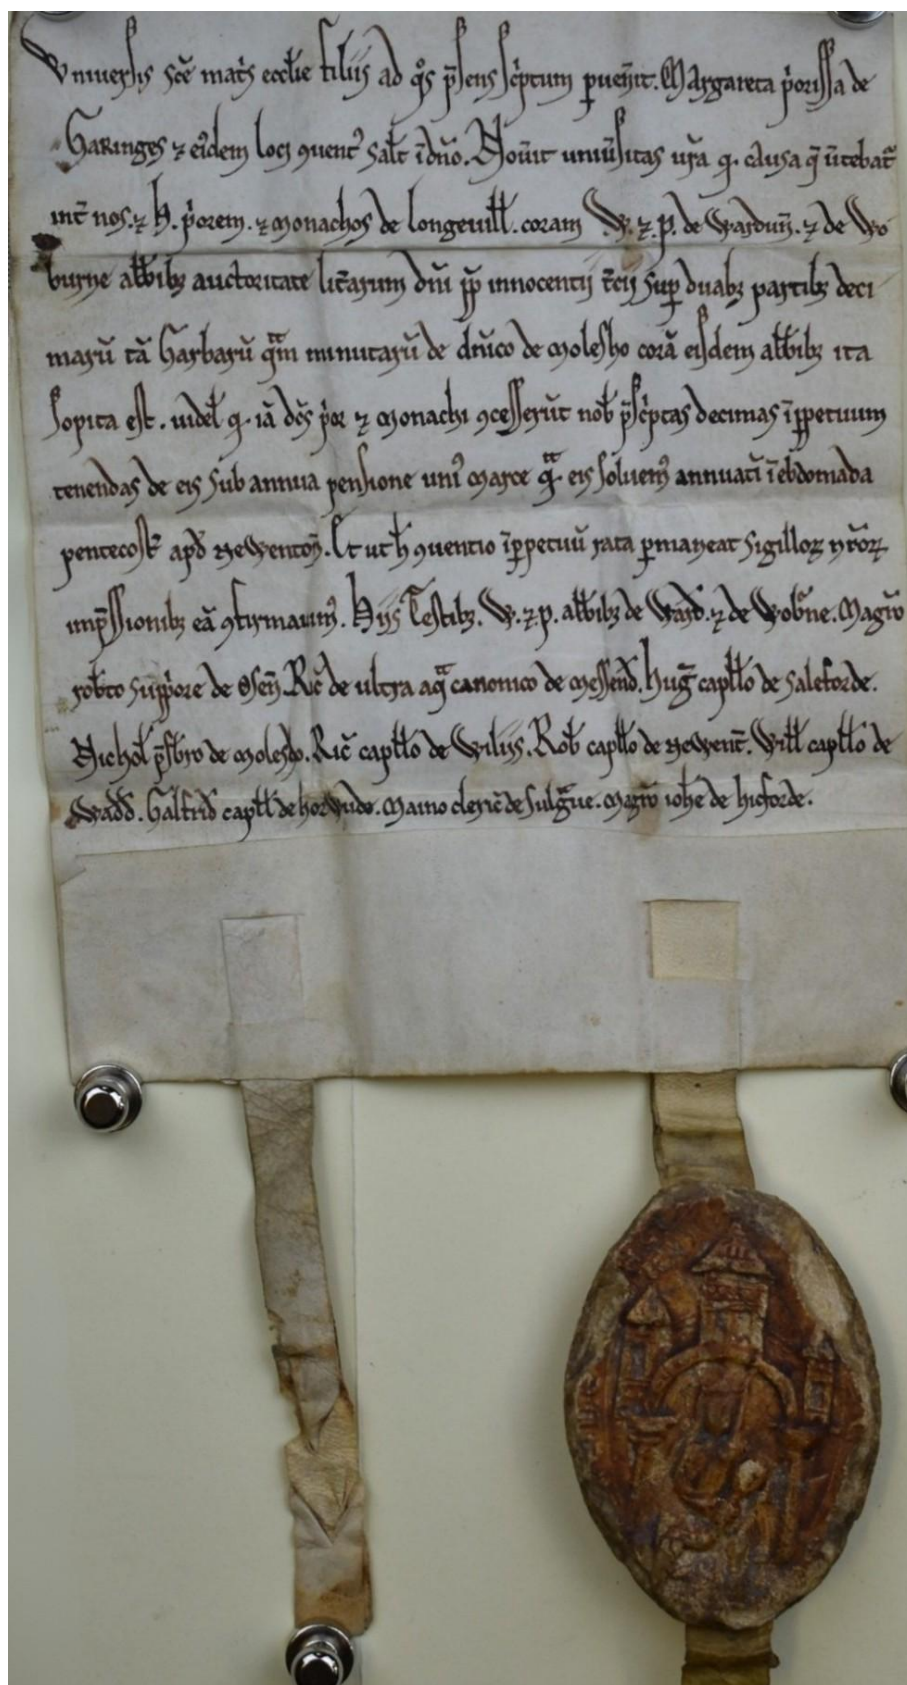 Vniuersis sc̄e mat̓s eccl̄ie filiis ad q̊s p̄sens sc̓ptum puen̄it. Margareta p̓orissa de
Haringes ⁊ ei᾽dem loci ꝯuent᾽ salt̄ ī dn̄o. Nou̅it uniu̅sitas ur̄a ꝙ causa q̄ u̅tebat᷑
int̄ nos. ⁊ H. p̓orem. ⁊ monachos de longeuill̄. coram W. ⁊ .P. de Wardun̄. ⁊ de Wo
burne abb̄ibꝫ auctoritate litt̄arum dn̄i p̄p̄ innocentij t̄cij sup̱ duabꝫ partibꝫ deci
maru̅ ta̅ Garbaru̅ qᵃ̄m minutaru̅ de dn̄ico de molesho cora̅ eisdem abb̄ibꝫ ita
sopita est. uidel̄ ꝙ ia̅ dc̄s p̓or ⁊ monachi ꝯcesseru̅t nob̄ p̄sc̓ptas decimas ī ꝑpetuum
tenendas de eis sub annua pensione uni᾽ marce qᵃ̄ eis soluem᾽ annuati̅ ī ebdomada
pentecost̄ apd̄ Newenton̄. Et ut h̄ ꝯuentio ī ꝑpetuu̅ rata ꝑmaneat sigilloꝝ nr̄oꝝ
imp̄ssionibꝫ ea̅ ꝯfirmauim᾽. Hijs Testibꝫ. W. ⁊ p. abb̄ibꝫ de Ward̄. ⁊ de Wob᷑ne. Magr̄o
rob̄to supp̓ore de Osen̄. Ric̄ de ultra aqᵃ canonico de messend̄. Hug̅ capll̄o de saleforde.
Nichol̄ p̄sb̄ro de molesho. Ric̄ capll̄o de Wiliis. Rob̄ capll̄o de Newent̄. Will̄ capll̄o de
Wadd̄. Galfrid̄ capll̄ de horwude. Maino cleric̄ de sulg᷑ue. Magr̄o ioh̄e de hicforde.